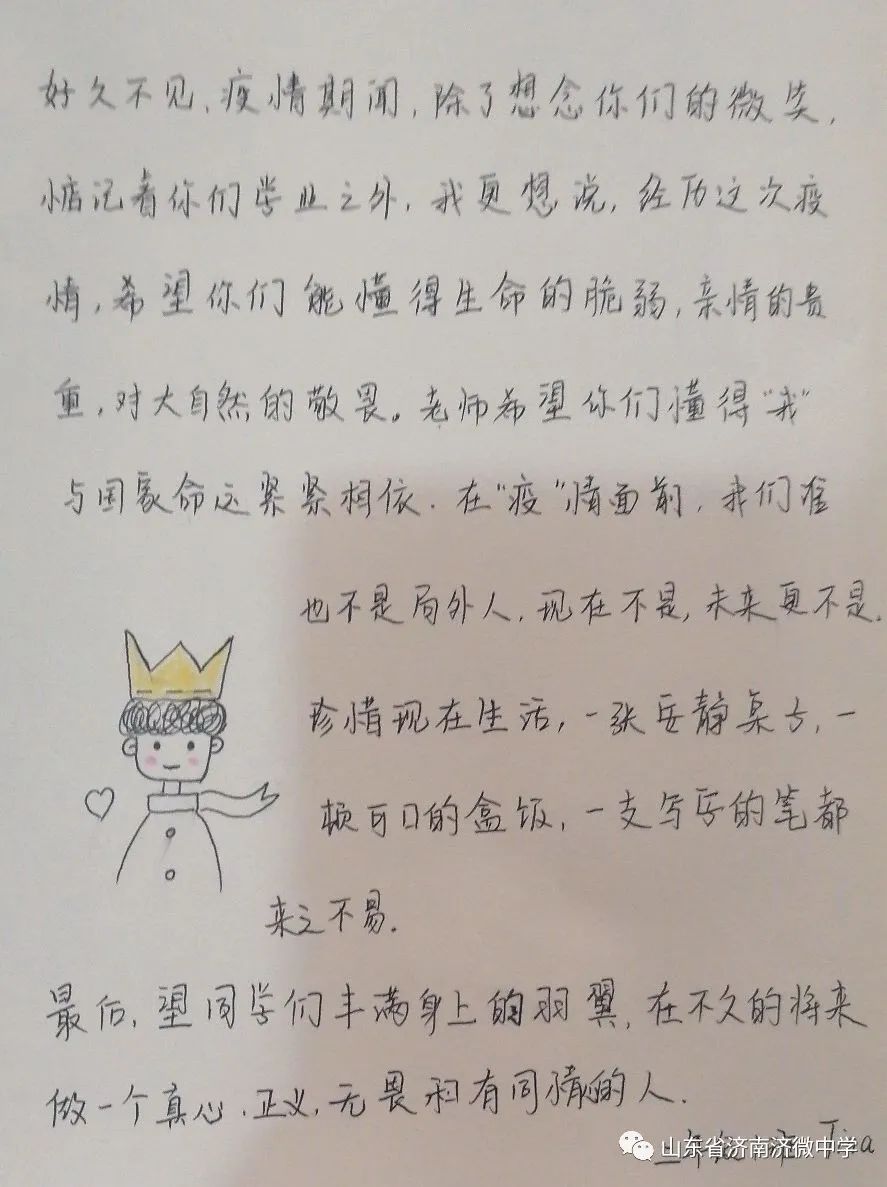 好久不见，疫情期间，除了想念你们的微笑，
惦记着你们学业之外，我更想说，经历这次疫
情，希望你们能懂得生命的脆弱，亲情的贵
重，对大自然的敬畏。老师希望你们懂得“我”
与国家命运紧紧相依．在“疫”情面前，我们谁
也不是局外人，现在不是，未来更不是．
珍惜现在生活，一张安静桌
一
顿可口的盒饭，一支写字的笔都
来之不易．
最后，望同学们丰满身上的羽翼，在不久的将来
做一个真心、正义、无畏和有同情心的人．
Tina
山东省济南济微中学